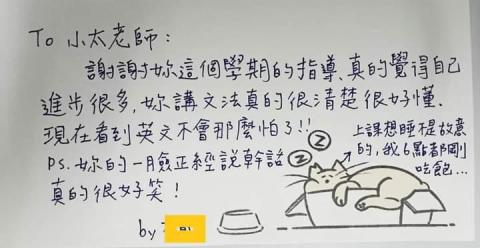 To 小太老師：
謝謝妳這個學期的指導、真的覺得自己
進步很多，妳講文法真的很清楚很好懂.
現在看到英文不會那麼怕了!!
PS. 妳的一臉正經說幹話
真的很好笑！
by
z
z
上課想睡是故意
的，我6點都剛
吃飽...